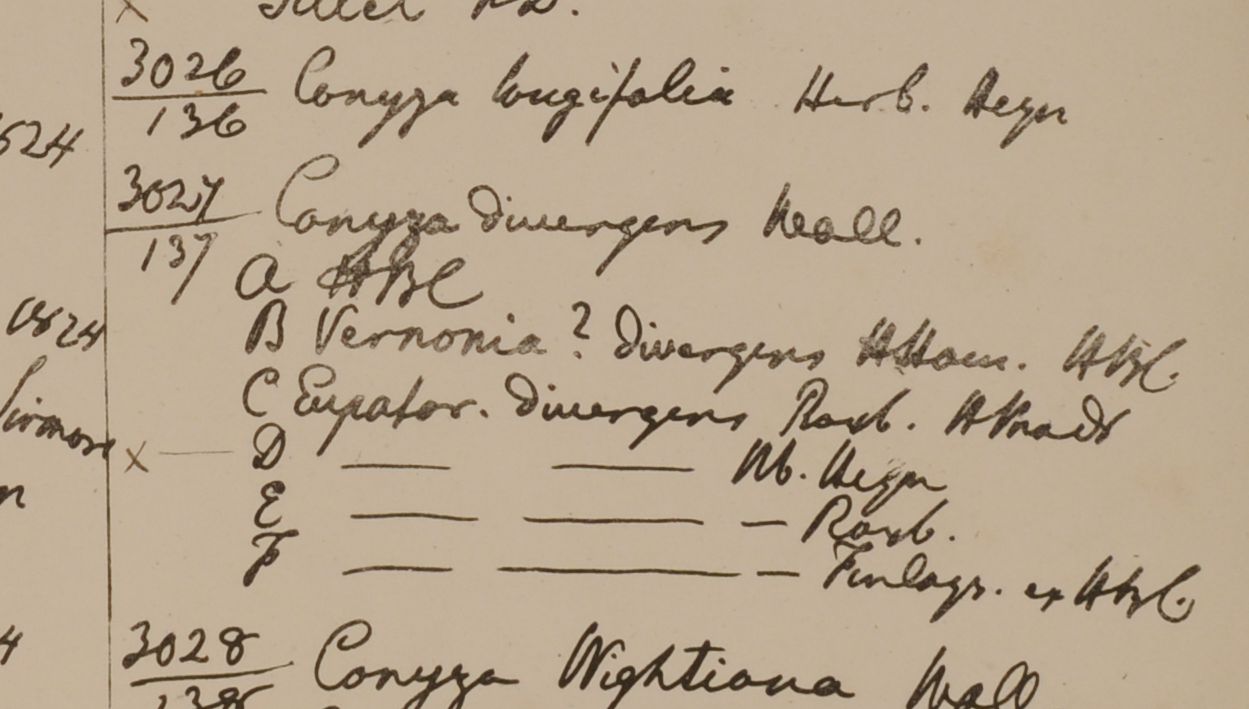 3026
136 Conyza longifolia Herb. Heyn
624
3027
137 Conyza divergens Wall.
A HBC
1824
B Vernonia? divergens HHam. HBC.
C Eupator. divergens Roxb. HMadr
Sirmore
x — D — — Hb. Heyn
E — — — Roxb.
F — — — Finlays. ex HBC.
4
3028
138 Conyza Wightiana Wall